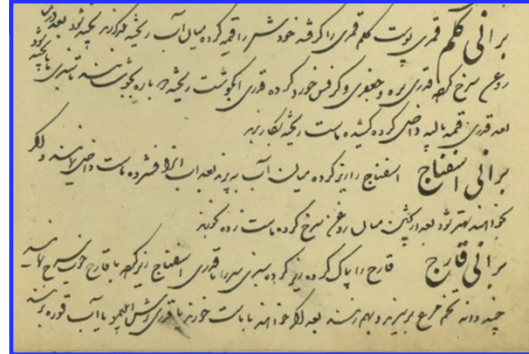 برانی کلم قمری پوست کلم قمری را گرفته خودش را قیمه کرده میان آب ریخته که قدری پخته شود بعد در
روغن سرخ کرده قدری بره و جعفری و کرفس خورد کرده قدری آبگوشت ریخته دوباره بجوشانند تا سبزی ها پخته شود
بعد قدری قیمه با لپه داخل کرده کشیده ماست ریخته بکار برند
برانی اسفناج اسفناج را ریز کرده میان آب به پزند بعد آب آنرا فشرده ماست داخل نمایند و اگر
بخواهند بهتر شود بعد از پختن میان روغن سرخ کرده ماست زده بخورند
برانی قارچ قارچ را پاک کرده ریز کرده سبزی سیر را با قدری اسفناج ریز کرده با قارچ خوب سرخ نمایند
چند دانه تخم مرغ بریزند و بهم زنند بعد اگر خواهند با ماست خورند یا قدری آبلیمو یا آب غوره بزنند